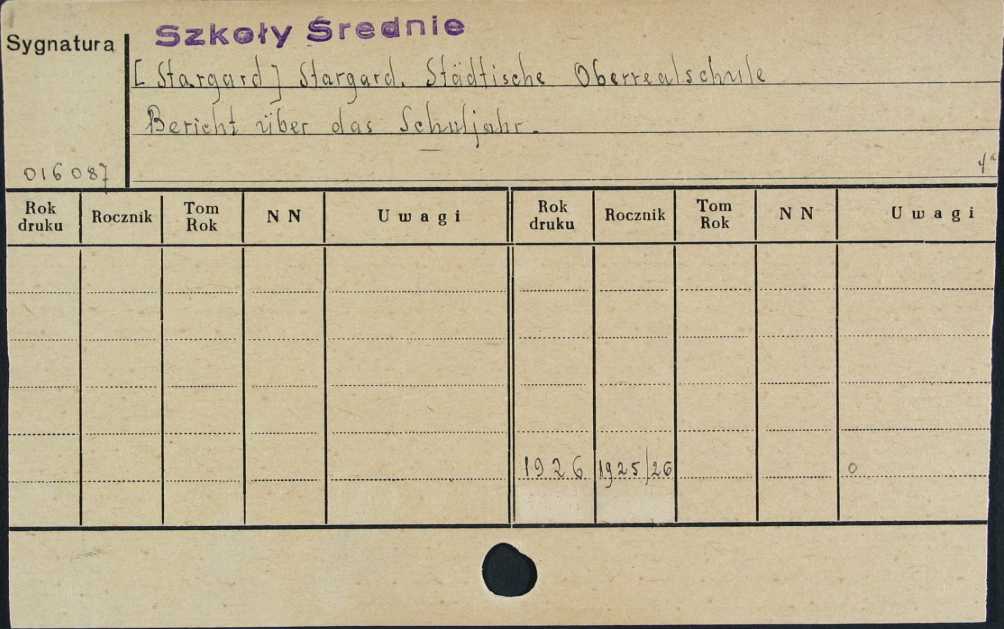 Szkoły Średnie
Sygnatura
[Stargard] Stargard. Städtische Oberrealschule
Bericht über das Schuljahr.
016087
4°
Rok druku Rocznik Tom Rok NN Uwagi Rok druku Rocznik Tom Rok NN Uwagi
1926 1925/26 0